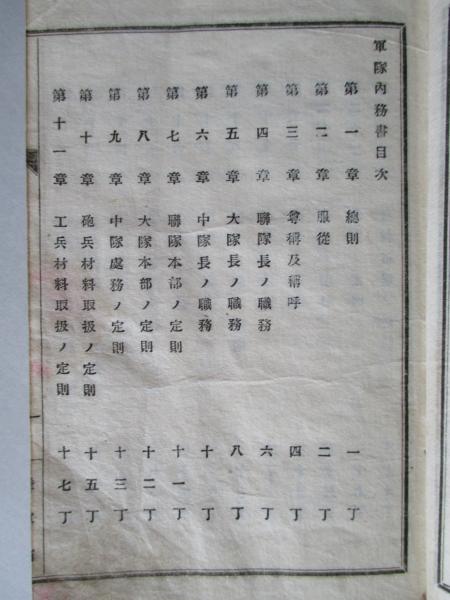 軍隊內務書目次
第一章 總則 一丁
第二章 服從 二丁
第三章 尊稱及稱呼 四丁
第四章 聯隊長ノ職務 六丁
第五章 大隊長ノ職務 八丁
第六章 中隊長ノ職務 十丁
第七章 聯隊本部ノ定則 十一丁
第八章 大隊本部ノ定則 十二丁
第九章 中隊處務ノ定則 十三丁
第十章 砲兵材料取扱ノ定則 十五丁
第十一章 工兵材料取扱ノ定則 十七丁